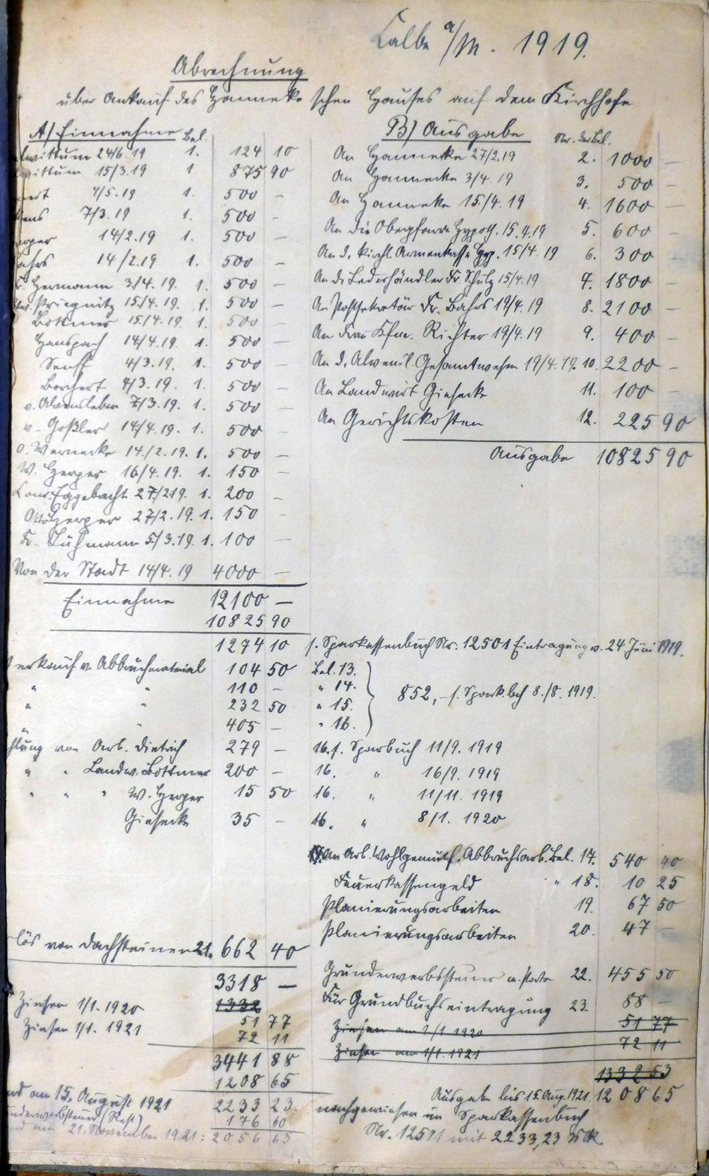 Kalbe a/M. 1919.
Abrechnung
über Ankauf des Hanneke'schen Hauses auf dem Kirchhofe
A) Einnahme Bel.
24/6.19 1. 124 10
15/3.19 1 875 90
4/5.19 1. 500 -
7/3.19 1. 500 -
14/2.19 1. 500 -
14/2.19 1. 500 -
Hermann 3/4.19 1. 500 -
Priegnitz 15/4.19. 1. 500 -
Bottmer 15/4.19. 1. 500 -
Hanspach 14/4.19 1. 500 -
Senff 4/3.19. 1. 500 -
Borchert 4/3.19. 1. 500 -
v. Alvensleben 7/3.19. 1. 500 -
v. Goßler 14/4.19. 1. 500 -
O. Wernecke 14./2.19. 1. 500 -
W. Herper 16/4.19. 1. 150 -
Eggebrecht 27/2 19. 1. 200 -
Otto Herper 27/2.19. 1. 150 -
Fr. Luhmann 5/3.19. 1. 100 -
Von der Stadt 14/4.19 4000 -
Einnahme 12100 -
10825 90
1274 10 s. Sparkassenbuch Nr. 12501 Eintragung v. 24 Juni 1919.
B) Ausgabe Nr. des Bel.
An Hanneke 27/2.19 2. 1000 -
An Hannecke 3/4.19 3. 500 -
An Hanneke 15/4.19 4. 1600 -
An die Oberpfarre Hypoth. 15.4.19 5. 600 -
An d. kirchl. Armenkasse Hyp. 15/4.19 6. 300 -
An d. Lederhändler Fr. Schulz 15/4.19 7. 1800 -
An Postsekretär Fr. Bahrs 19/4.19 8. 2100 -
An Frau Kfm. Richter 19/4.19 9. 400 -
An d. Gesamtwesen 19/4.19. 10. 2200 -
An Landwirt Giesecke 11. 100 -
An Gerichtskosten 12. 225 90
Ausgabe 10825 90
verkauf v. Abbruchmaterial 104 50 Bel. 13.
" " 110 - " 14.
" " 232 50 " 15.
" 405 - " 16.
852,- s. Sparkbch 8./8. 1919.
von Arb. Dietrich 279 - 16. s. Sparbuch 11/9. 1919
" " Landw. Bottmer 200 - 16. " 16/9. 1919
" " " W. Herper 15 50 16. " 11/11. 1919
Giesecke 35 - 16. " 8/1. 1920
An Arb. Wohlgemuth, Abbruchsarb. Bel. 17. 540 40
Feuerkassengeld " 18. 10 25
Planierungsarbeiten 19. 67 50
Planierungsarbeiten 20. 47 -
lös von Dachsteinen 21. 662 40
3318 -
1332
Zinsen 1/1. 1920 51 77
Zinsen 1/1. 1921 72 11
3441 88
1208 65
Grunderwerbssteuer u. Porto 22. 455 50
Für Grundbuchseintragung 23. 88 -
Zinsen am 1/1. 1920 51 77
Zinsen am 1/1. 1921 72 11
1332 53
Ausgabe bis 15. Aug. 1921. 1208 65
am 15. August 1921 2233 23
(Rest) 176 60
am 21. November 1921: 2056 63
nachgewiesen in Sparkassenbuch
Nr. 12501 mit 2233,23 Mk.